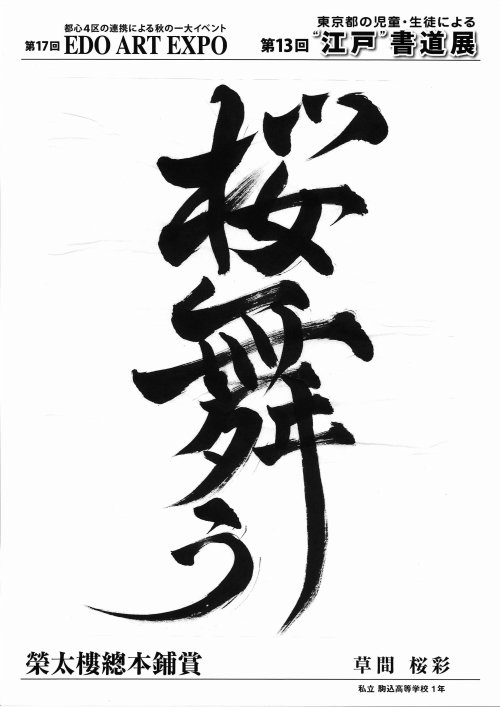 都心4区の連携による秋の一大イベント
第17回 EDO ART EXPO
東京都の児童・生徒による
第13回 “江戸”書道展
桜舞う
榮太樓總本鋪賞
草間 桜彩
私立 駒込高等学校 1年